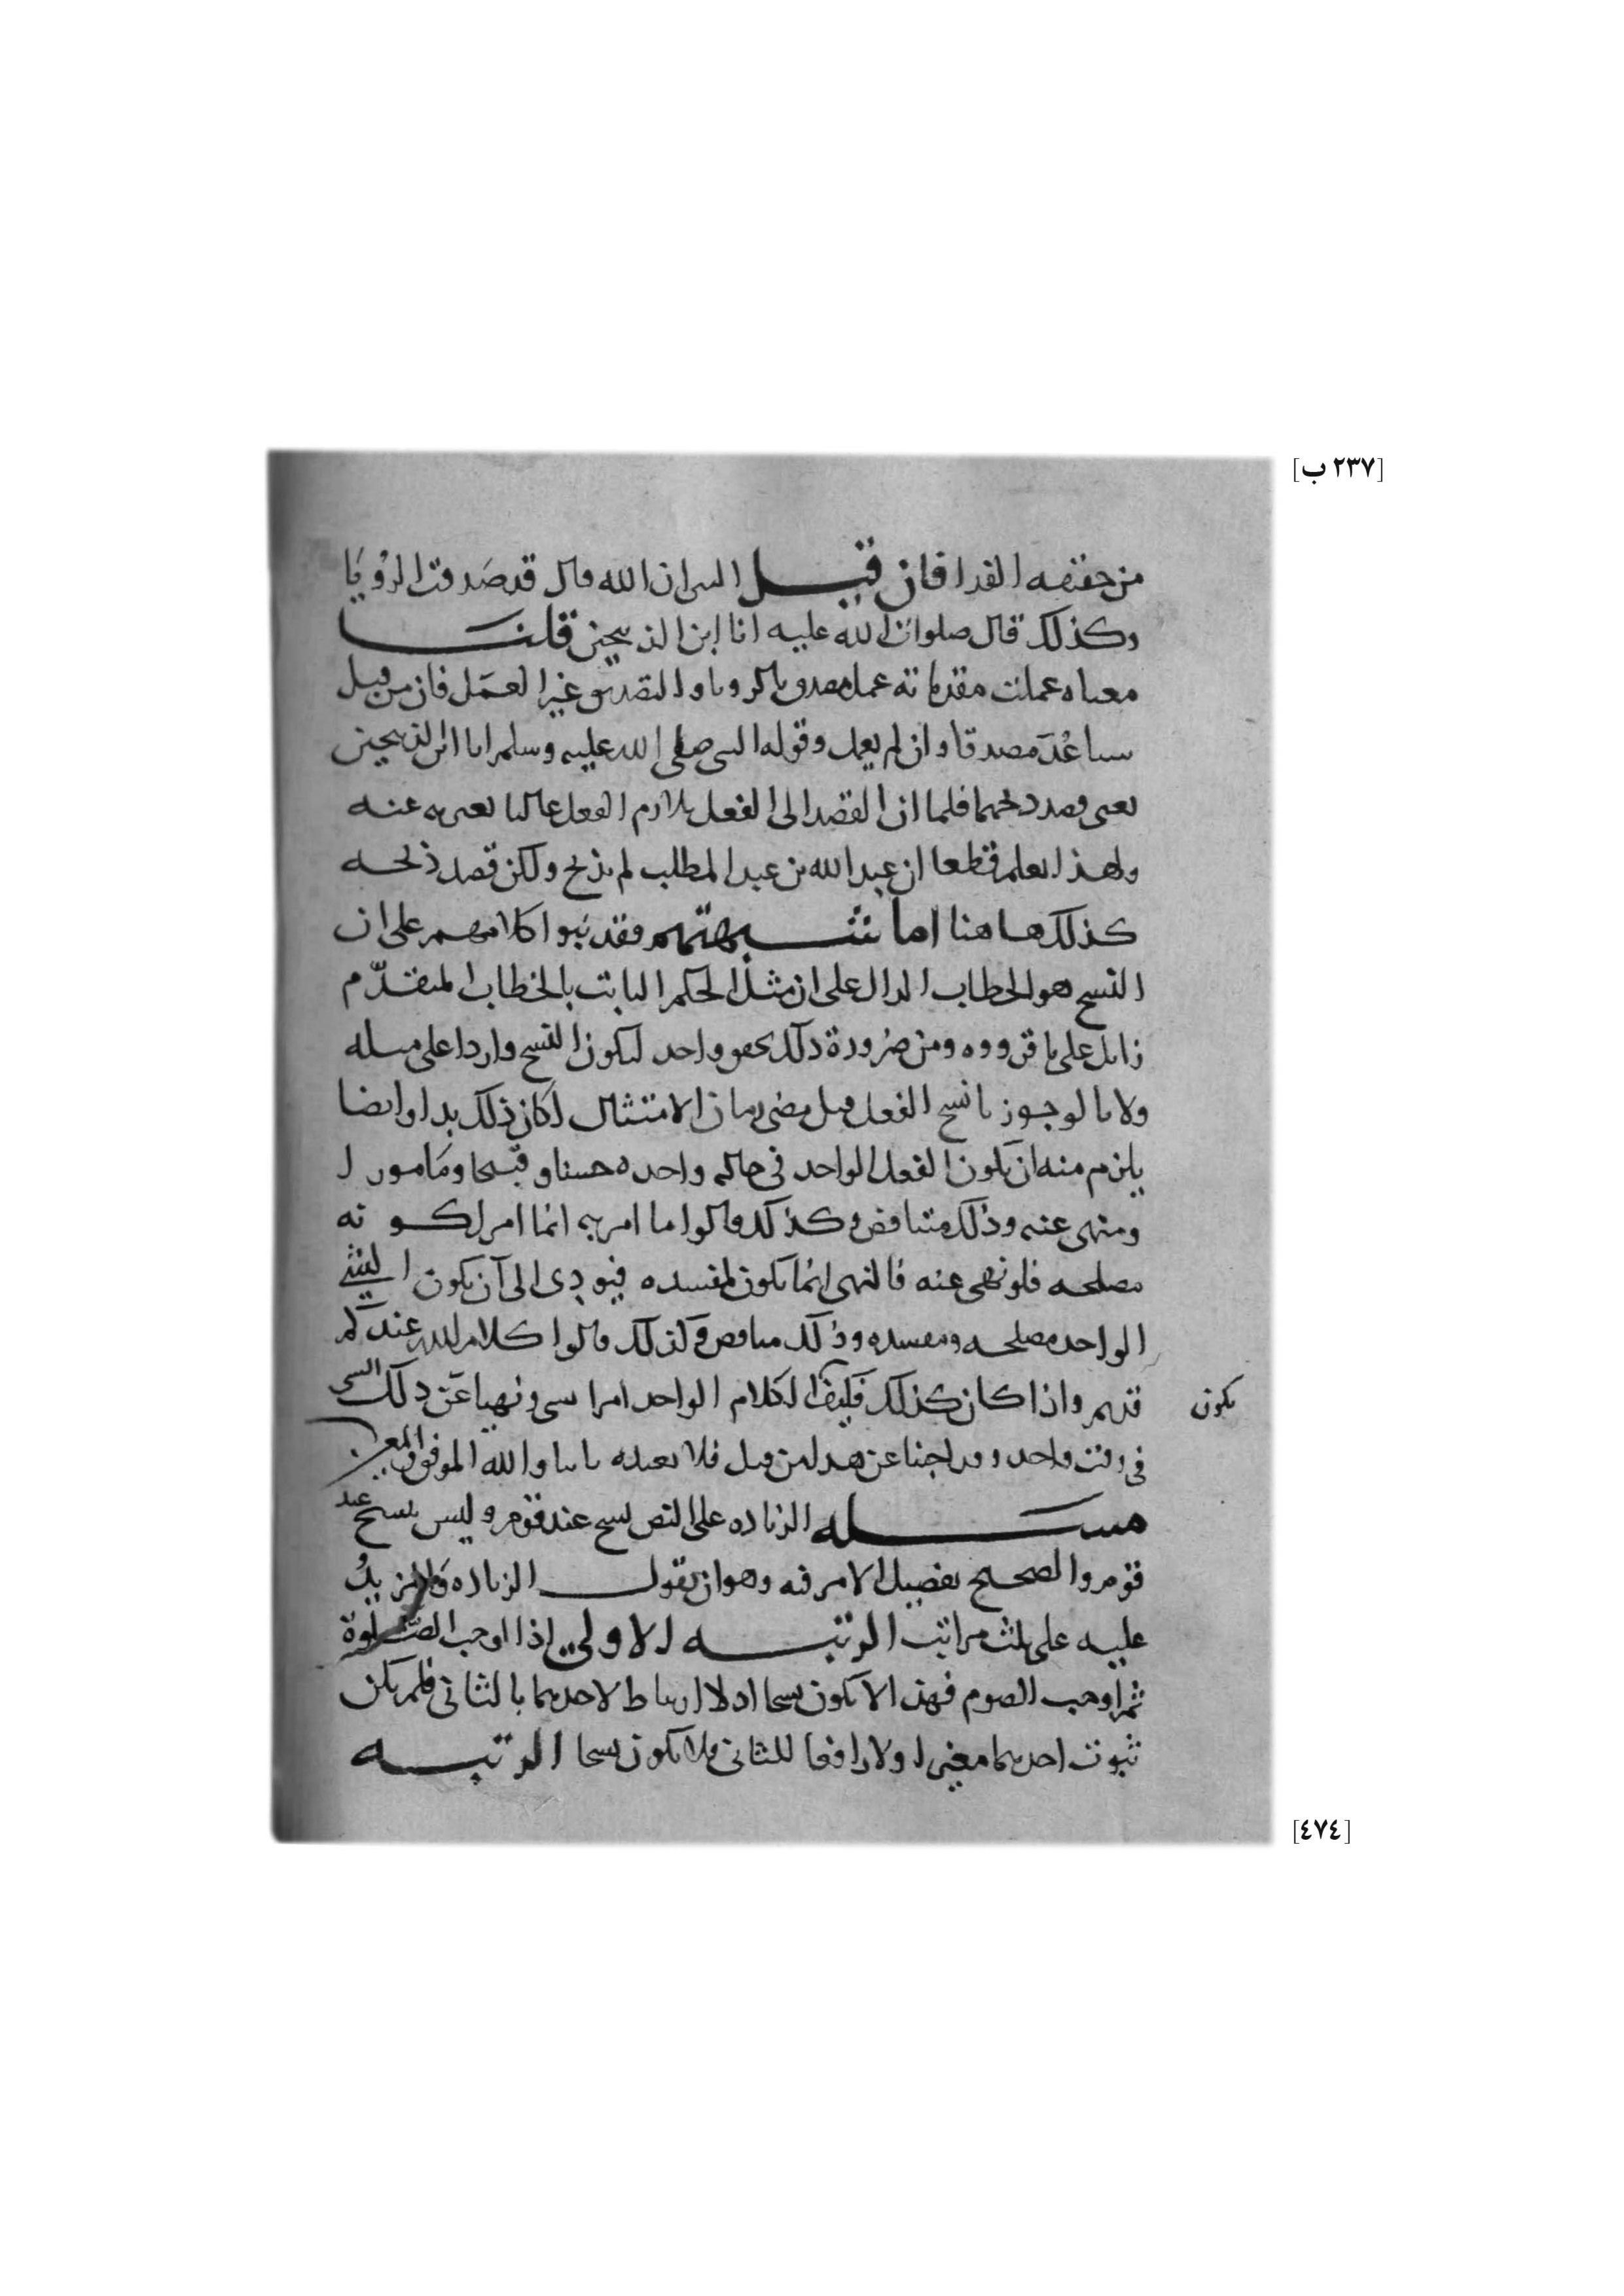 [٢٣٧ ب]
من حقيقه الفدا فان قيل اليس ان الله قال قد صدقت الرؤيا
وكذلك قال صلوات الله عليه انا ابن الذبيحين قلنا
معناه عملت مقدماته عمل مصدق بالرويا والتصديق غير العمل فان من قبل
سيا عُدّ مصدقا وان لم يعمل وقوله النبي صلى الله عليه وسلم انا ابن الذبيحين
يعني قصد ذبحهما فلما ان القصد الى الفعل يلازم الفعل غالبا يعبر به عنه
ولهذا يعلم قطعا ان عبد الله بن عبد المطلب لم يذبح ولكن قصد ذبحه
كذلك هاهنا اما شبهتهم فقد بنوا كلامهم على ان
النسخ هو الخطاب الدال على ان مثل الحكم الثابت بالخطاب المتقدّم
زايل على ما قرروه ومن ضرورة ذلك تحقق واحد ليكون النسخ واردا على مثله
ولانا لو جوزنا نسخ الفعل قبل مضى زمان الامتثال لكان ذلك بدا وايضا
يلزم منه ان يكون الفعل الواحد في حاله واحده حسنا وقبيحا ومامورا
ومنهى عنه وذلك متناقض وكذلك قالوا ما امر به انما امر لكونه
مصلحه فلو نهى عنه فالنهى انما يكون لمفسده فيودى الى ان يكون الشي
الواحد مصلحه ومفسده وذلك متناقض وكذلك قالوا كلام الله عندكم
قديم واذا كان كذلك فكيف الكلام الواحد امرا بشي ونهيا عن ذلك الشي
يكون
في وقت واحد وقد اجبنا عن هذا من قبل فلا نعيده ثانيا والله الموفق المعين
مسله الزياده على النص نسخ عند قوم وليس بنسخ عند
قوم والصحيح تفصيل الامر فيه وهو ان نقول الزياده والمزيدُ
عليه على ثلث مراتب الرتبه الاولى اذا اوجب الصلوة
ثم اوجب الصوم فهذا لا يكون نسخا اذ لا ارتباط لاحدهما بالثاني فلم يكن
ثبوت احدهما مغيرا ولا رافعا للثاني فلا يكون نسخا الرتبه
[٤٧٤]